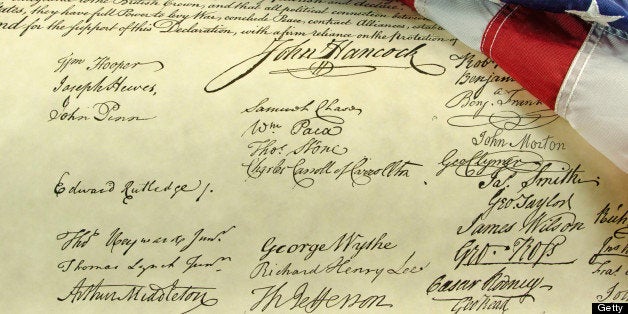 to the British Crown, and that all political connection between
they have full Power to levy War, conclude Peace, contract Alliances,
nd for the support of this Declaration, with a firm reliance on the protection of
John Hancock
Wm Hooper
Joseph Hewes,
John Penn
Edward Rutledge /.
Thos Heyward Junr.
Thomas Lynch Junr.
Arthur Middleton
Samuel Chase
Wm Paca
Thos Stone
Charles Carroll of Carrollton
George Wythe
Richard Henry Lee
Th Jefferson
Rob
Benjamin
Benj. Frank
John Morton
Geo Clymer
Jas. Smith
Geo. Taylor
James Wilson
Geo. Ross
Caesar Rodney
Geo Read
Rich
Getty